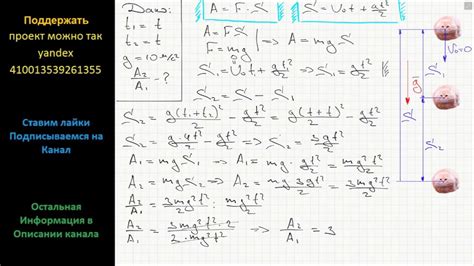 Поддержать
проект можно так
yandex
410013539261355
Ставим лайки
Подписываемся на
Канал
Остальная
Информация в
Описании канала
Дано:
t₁ = t
t₂ = t
g = 10 м/с²
A₂/A₁ - ?
A = F·S
S = V₀t + gt²/2
A = F·S
F = mg
=> A = mgS
S₁ = V₀t + gt²/2 => S₁ = gt²/2
S₂ = S - S₁
S₂ = g(t₁+t₂)²/2 - gt²/2 = g(t+t)²/2 - gt²/2
S₂ = g·4t²/2 - gt²/2 => S₂ = 3gt²/2
A₁ = mgS₁ => A₁ = mg·gt²/2 = mg²t²/2
A₂ = mgS₂ => A₂ = mg 3gt²/2 = 3mg²t²/2
A₂/A₁ = 3mg²t²/2 : mg²t²/2
A₂/A₁ = 3mg²t²·2/2·mg²t² => A₂/A₁ = 3
V₀=0
g
S₁
S
S₂